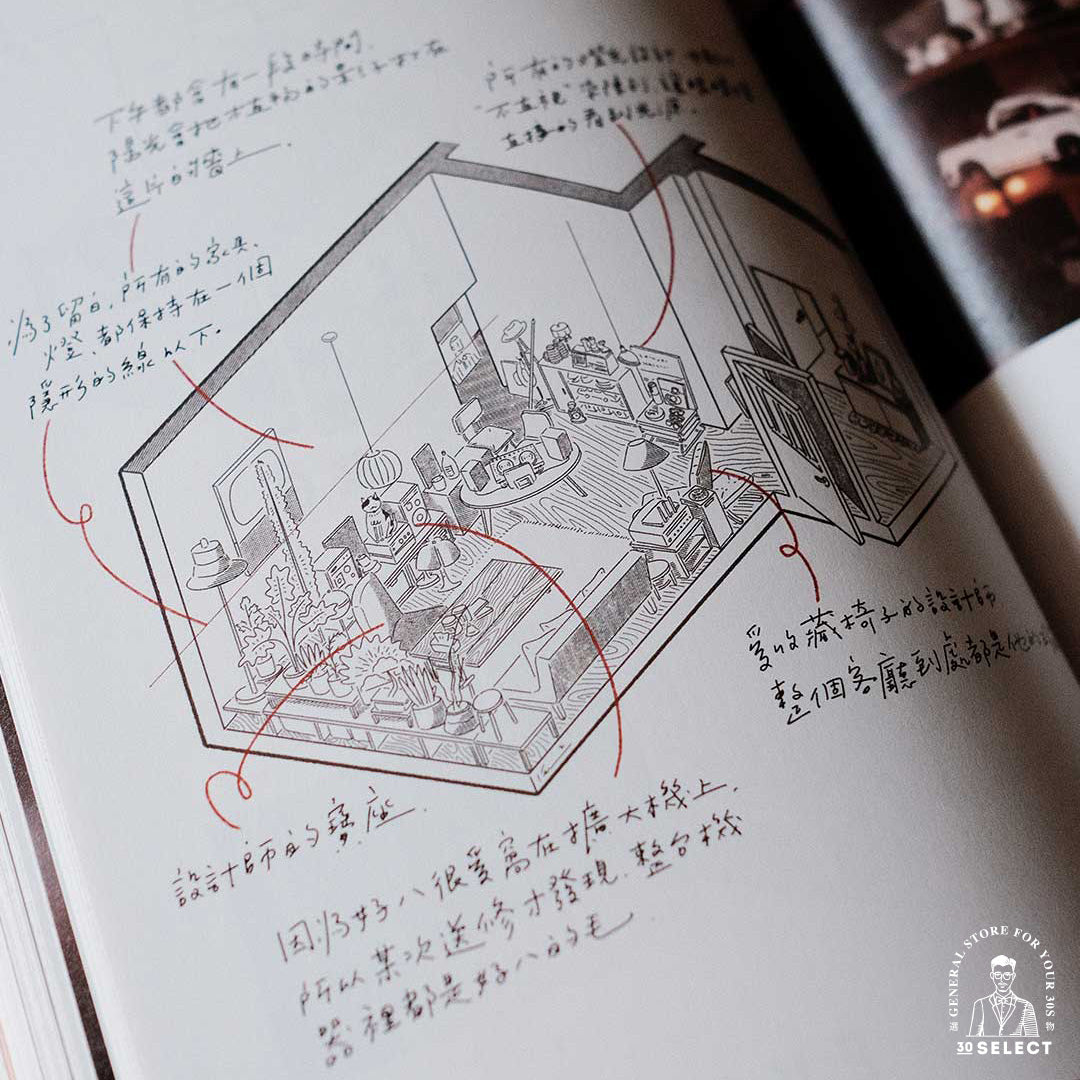 下午都會有一段時間.
陽光會把植物的影子打在
這片的牆上.
所有的燈光設計
"不直視"
直接的看到光源.
為了留白,所有的家具、
燈、都保持在一個
隱形的線以下。
愛收藏椅子的設計師
整個客廳到處都是他的
設計師的寶座.
因為好八很愛窩在擴大機上.
所以某次送修才發現.整台機
器裡都是好八的毛.
選 GENERAL STORE FOR YOUR 30S 物
30 SELECT